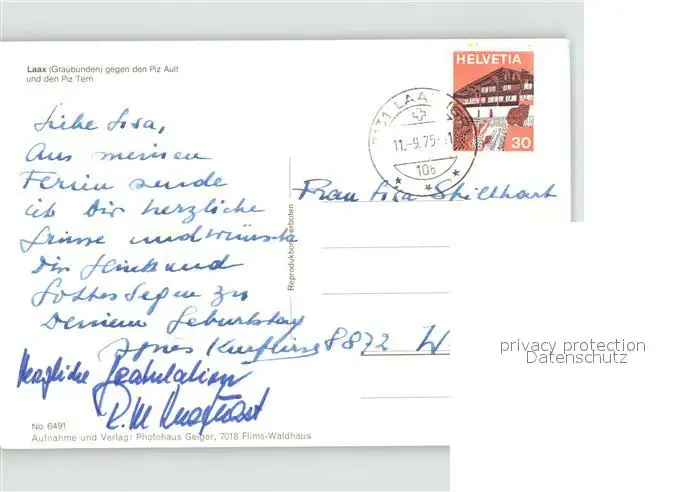 Laax (Graubünden) gegen den Piz Ault
und den Piz Terri
HELVETIA
30
7131 LAAX (GR)
11.-9.75
10b
Liebe Lisa,
Aus meinen
Ferien sende
ich Dir herzliche
Grüsse und wünsche
Dir Glück und
Gottes Segen zu
Deinem Geburtstag
Agnes
Herzliche Gratulation
Reproduktion verboten
Frau Lisa Stillhart
8872 W
privacy protection
Datenschutz
No. 6491
Aufnahme und Verlag: Photohaus Geiger, 7018 Flims-Waldhaus